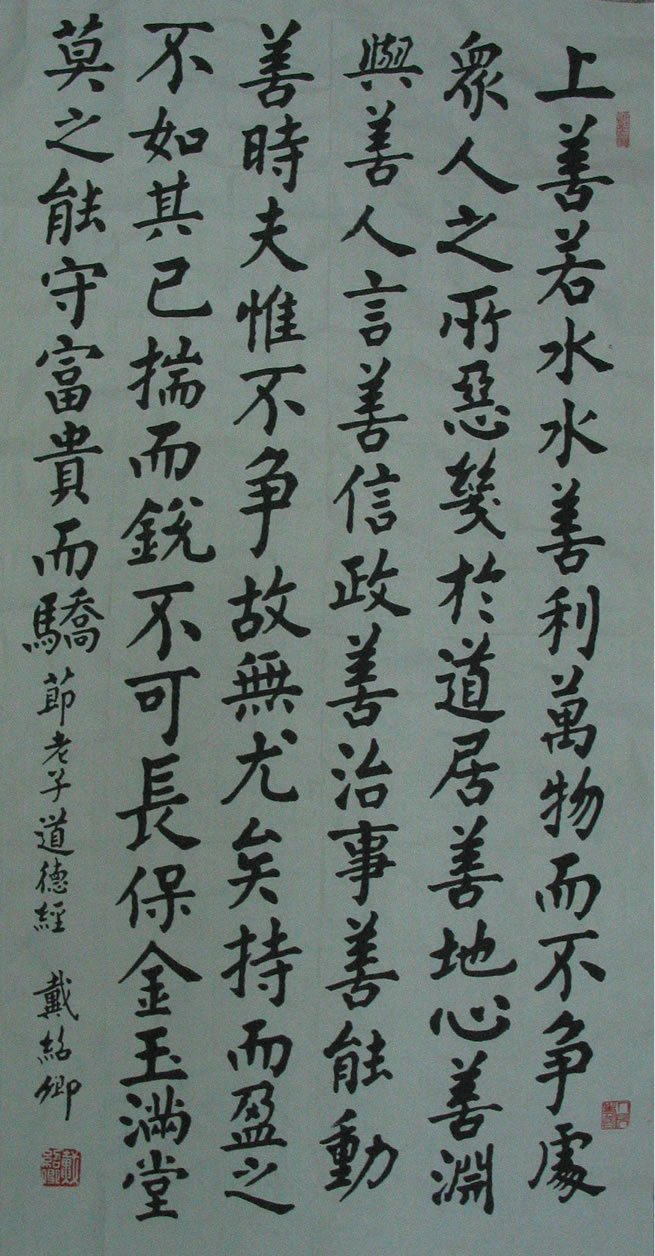 上善若水水善利萬物而不争處
衆人之所惡幾於道居善地心善淵
與善人言善信政善治事善能動
善時夫惟不争故無尤矣持而盈之
不如其已揣而鋭不可長保金玉滿堂
莫之能守富貴而驕節老子道德經 戴紹卿